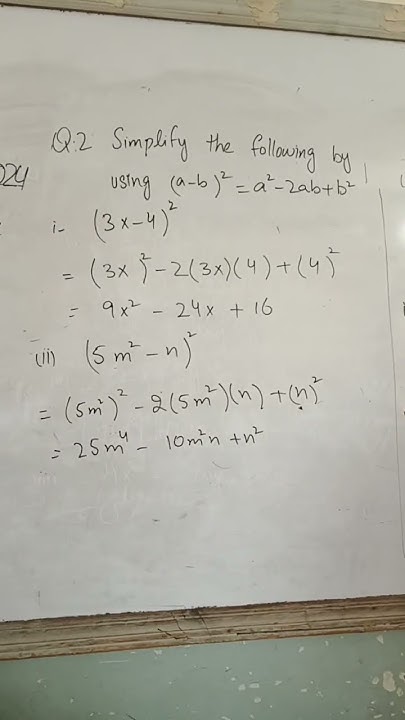 Q.2 Simplify the following by
024
using (a-b)² = a²-2ab+b²
i- (3x-4)²
= (3x)² - 2(3x)(4) + (4)²
= 9x² - 24x + 16
(ii) (5m² - n)²
= (5m²)² - 2(5m²)(n) + (n)²
= 25m⁴ - 10m²n + n²